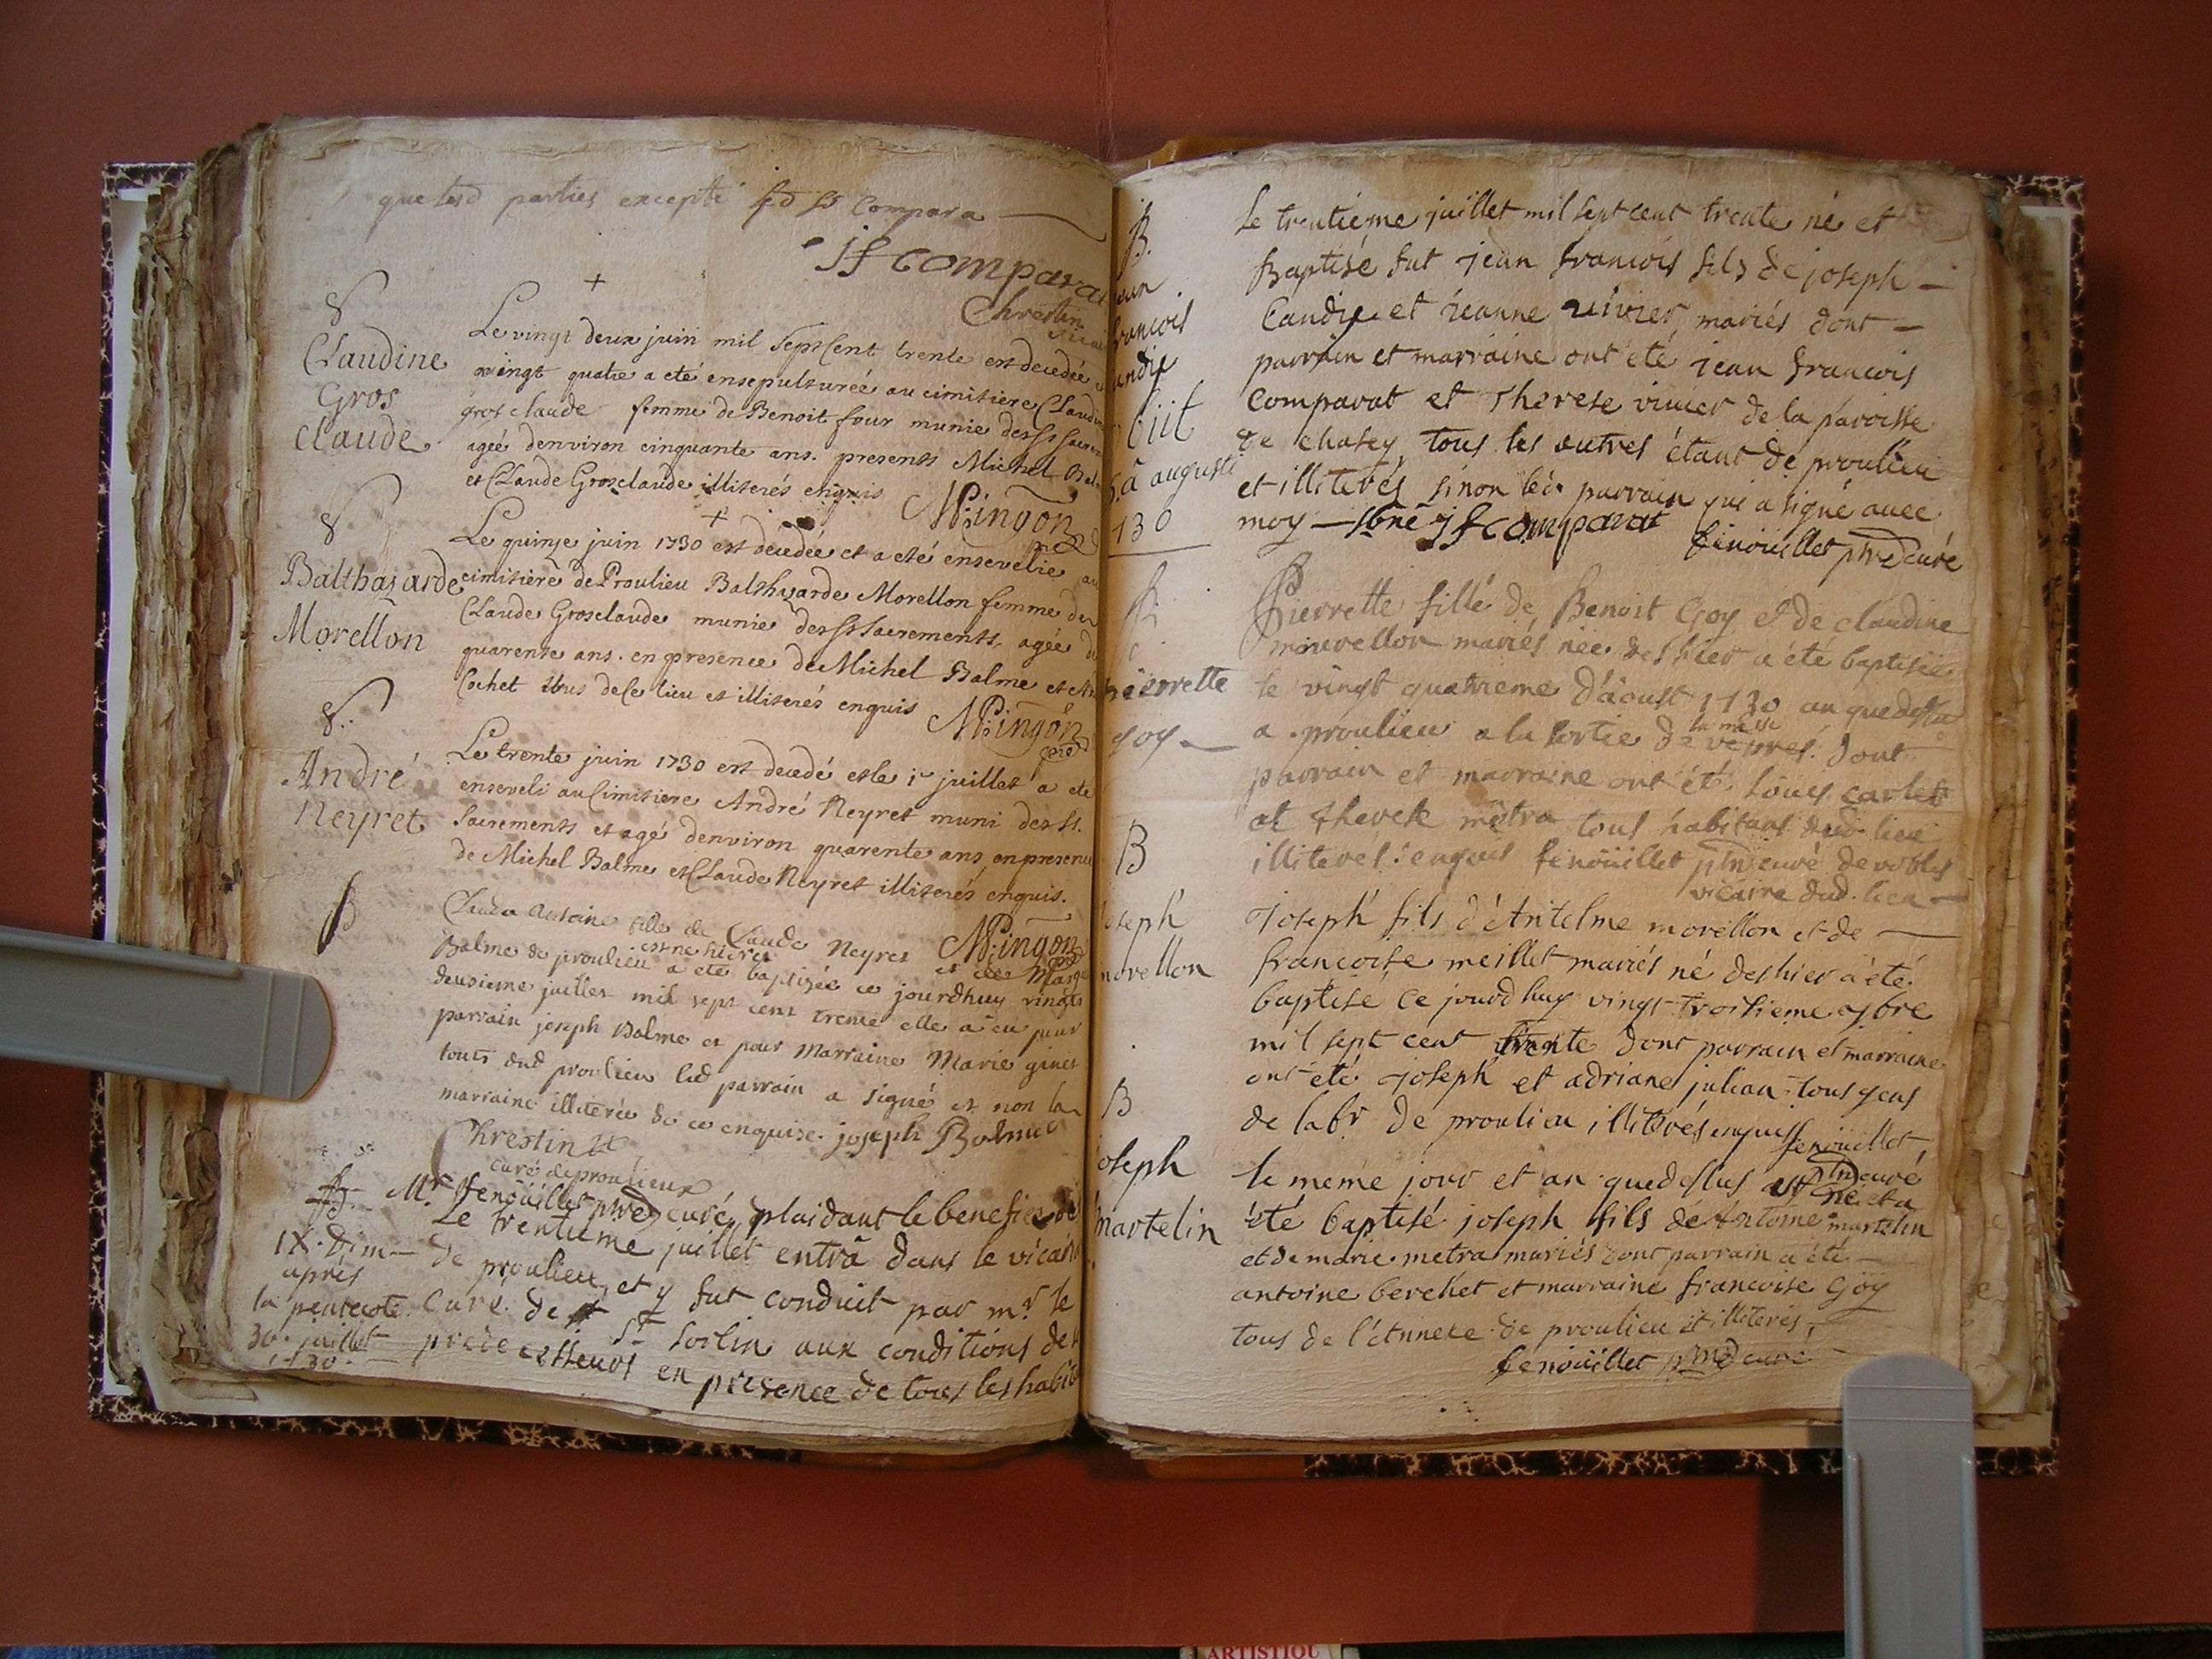 que lesd parties excepté led Sr Compara
jf comparat
Chrestin
Claudine
Gros
Claude
+
Le vingt deux juin mil Sept Cent trente est decedée
vingt quatre a eté ensepulturée au cimitiere Claudine
gros claude femme de Benoit four munie des Sts Sacrem
ageé denviron cinquante ans. presents Michel Bal
et Claude Grosclaude illiterés enquis
Mingon
Balthazarde
Morellon
+
Le quinze juin 1730 est decedée et a eté ensevelie au
cimitiere de Proulieu Balthazarde Morellon femme de
Claude Grosclaude munie des Sts Sacrements, agée de
quarente ans. en presence de Michel Balme et
Cochet tous de ce lieu et illiterés enquis
Mingon
André
Neyret
Le trente juin 1730 est decedé et le 1r juillet a eté
enseveli au Cimitiere André Neyret muni des Sts.
Sacrements et agé denviron quarente ans, en presence
de Michel Balme et Claude Neyret illiterés enquis.
Mingon
B
Antoine fille de Claude Neyret et de Marg
Balme de proulieu est ne hier et a eté baptizée ce jourdhuy vingt
deusieme juillet mil sept cent trente elle a eu pour
parrain joseph Balme et pour Marraine Marie ginet
touts dud proulieu led parrain a signé et non la
marraine illiterée de ce enquise. joseph Balme
Chrestin
curé de proulieux
Mr. fenoüillet ptre curé, plaidant le benefice de
IX. dim
apres
la pentecote
30. juillet
1730.
Le trentieme juillet entrâ dans le vicair
de proulieu, et y fut conduit par mr. le
Curé. de St Sorlin aux conditions de
predecesseurs en presence de tous les habit
B.
ean
francois
andy
obiit
5.a augusti
130
Le trentiéme juillet mil sept cent trente né et
Baptisé fut jean francois fils de joseph
Candy et jeanne vivier, mariés dont
parrain et marraine ont eté jean francois
comparat et Therese vivier de la paroisse
de chasey, tous les autres étant de proulieu
et illiterés, sinon led. parrain qui a signé avec
moy — jf comparat
fenoüillet ptre curé
pierrette
goy
Pierrette fille de Benoit Goy et de claudine
mourellon mariés née des hier a été baptisée
le vingt quatrieme d'aoust 1730 an que dessus
a proulieu a la sortie de la messe vepres. dont
parrain et marraine ont été. loüis carlet
et therese métra tous habitans dud. lieu
illiteres. enquis fenoüillet ptre curé
vicaire dud. lieu
B
joseph
morellon
Joseph fils d'Antelme morellon et de
francoise meillet mariés né des hier a été
baptisé ce jourdhuy vingt troisieme 9bre
mil sept cent trente dont parrain et marraine
ont été joseph et adriane julian tous gens
de labr de proulieu illiterés enquis fenoüillet
ptre curé
B
joseph
martelin
le meme jour et an que dessus est né et a
été baptisé joseph fils de Antoine martelin
et de marie metra mariés dont parrain a été
antoine berchet et marraine francoise Goy
tous de l'annexe de proulieu et illiterés,
fenoüillet ptre curé
ARTISTIQU